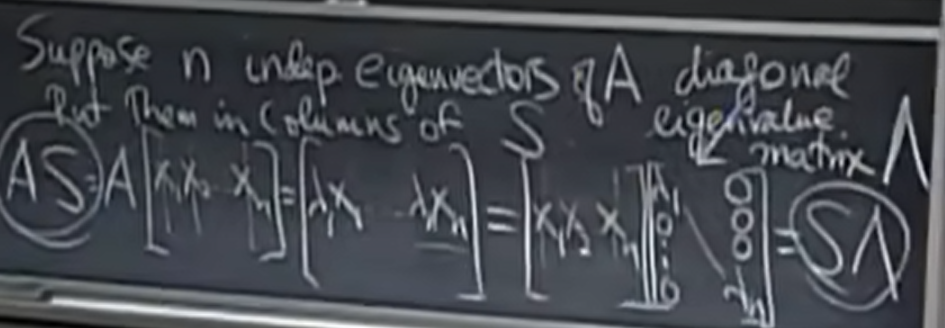 Suppose n indep. eigenvectors of A
Put them in columns of S
diagonal
eigenvalue
matrix Λ
AS = A [x₁ x₂ ... xₙ] = [λ₁x₁ ... λxₙ] = [x₁ x₂ xₙ] [λ₁ 0 ... 0 \ 0 0 0 λₙ] = SΛ